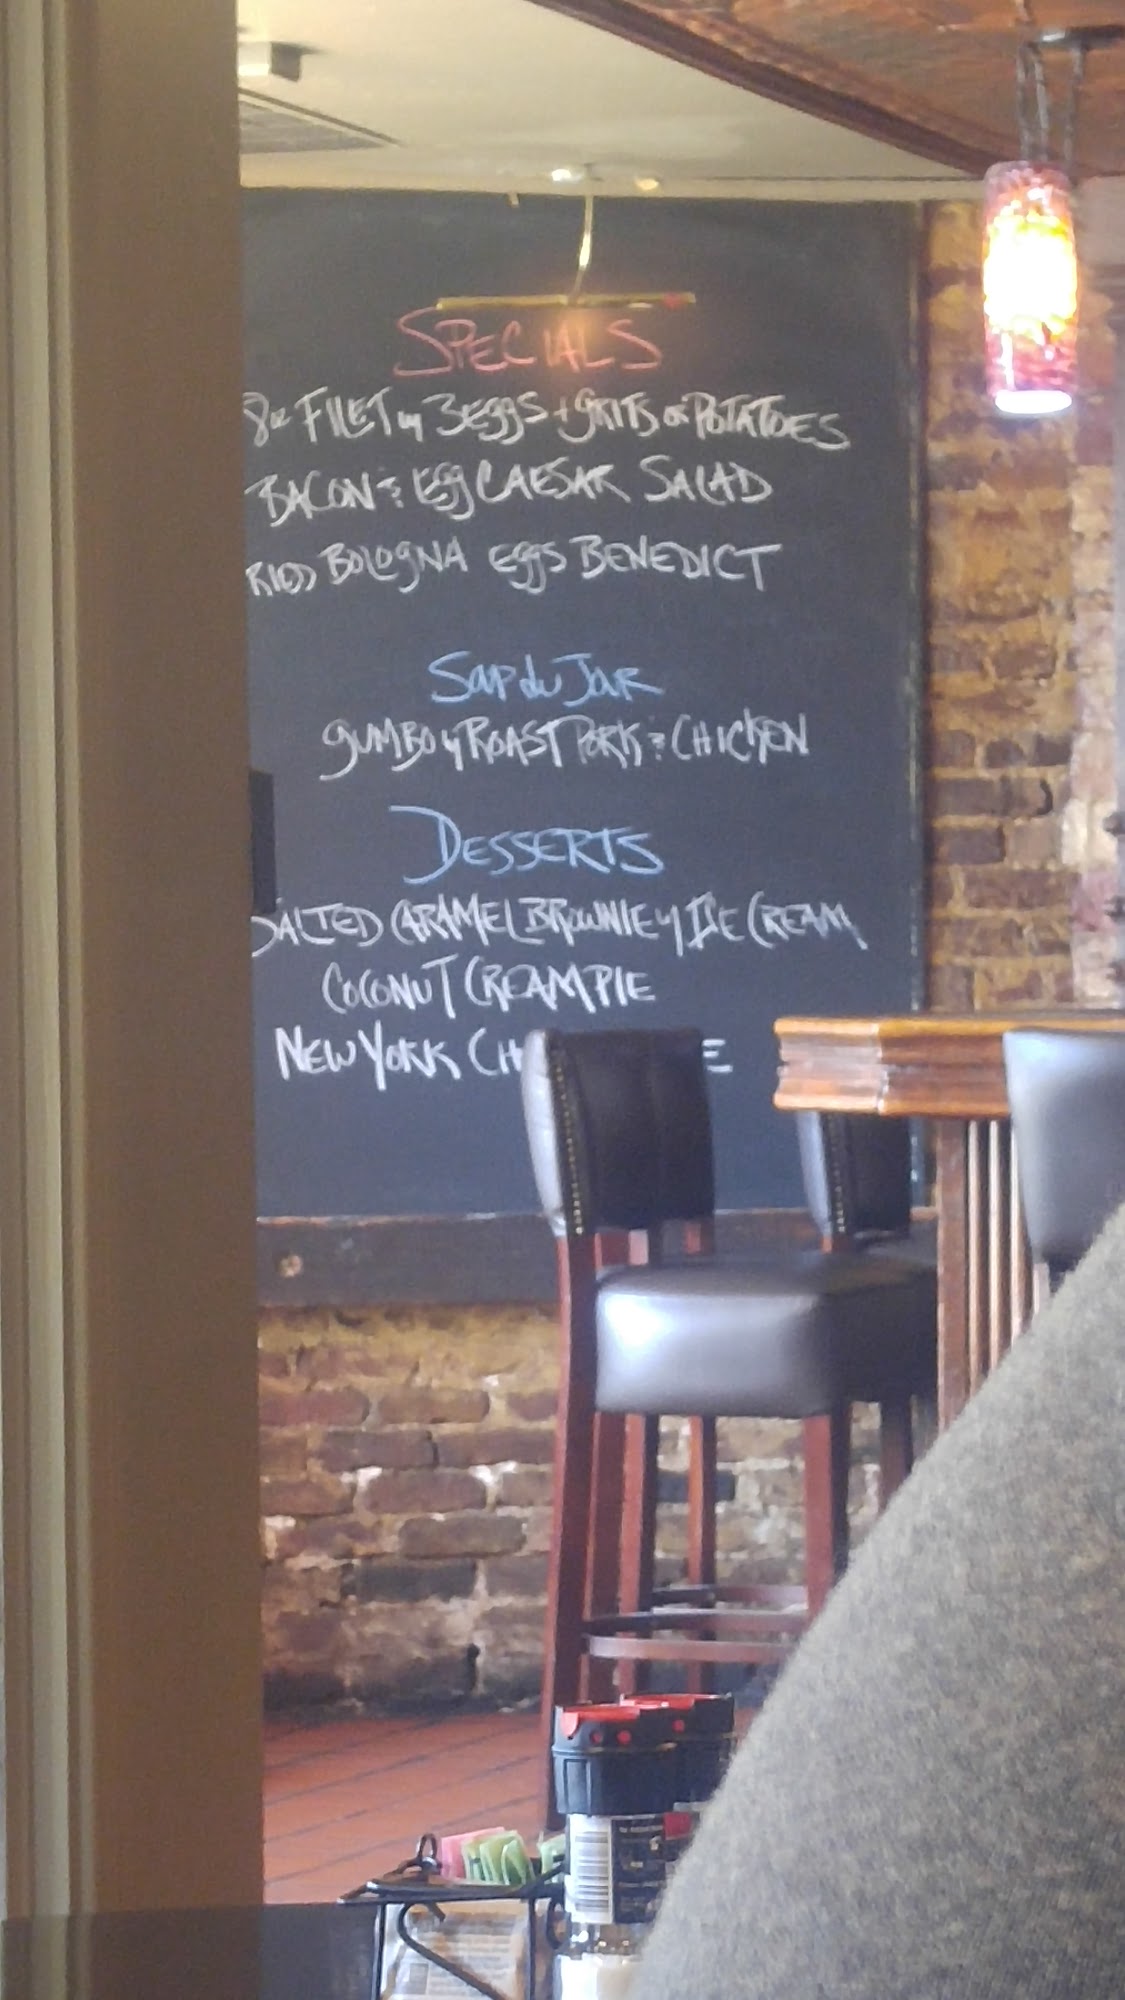 SPECIALS
8oz FILET w 3 EggS + gRITS OR POTATOES
BACON & Egg CAESAR SALAD
RIED BOLOgNA EggS BENEDICT
Soup du JAR
gUMBO w ROAST PORK & CHICKEN
DESSERTS
SALTED CARAMEL BROWNIE w ICE CREAM
COCONUT CREAM PIE
NEW YORK CH E